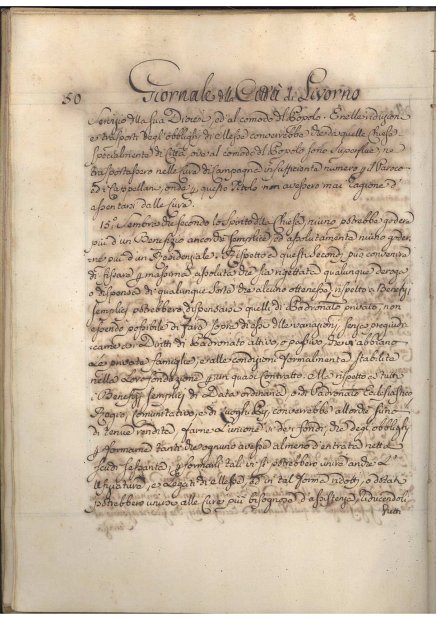 50 Giornale della Città di Livorno
servizio della sua Diocesi, ed al comodo del Popolo. E nelle riduzioni
e trasporti degl'obblighi di Messe converrebbe che da quelle Chiese
specialmente di Città, ove al comodo del Popolo sono superflue, ne
trasportassero nelle Cure di Campagna insufficiente numero
ed i Cappellani, onde questo titolo non avessero mai cagione d'
assentarsi dalle Cure.
15.° Sembra che secondo lo spirito della Chiesa, niuno potrebbe godere
più d'un Benefizio ancorché semplice, ed assolutamente niuno goder
ne più d'un Residenziale; Rispetto a questi secondi può convenire
di fissare massima assoluta che sia rigettata qualunque deroga
o dispensa di qualunque sorta che alcuno ottenesse, rispetto a Benefizj
semplici potrebbero dispensarsi quelli di Padronato privato, non
essendo possibile di fare sopra di essi delle variazioni, senza pregiudi
care a Diritti di Padronato attivo, o passivo, che vi abbiano
le private famiglie, e alle condizioni formalmente stabilite
nella loro fondazione quasi Contratto. Ma rispetto a tutti
i Benefizj semplici di Data ordinaria, e di Padronato Ecclesiastico
Regio, Comunitativo, e di Luoghi Pij, converrebbe allorché sono
di tenue rendita, farne l'unione sì dei fondi, che degl'obblighi
formarne tanti che ognuno avesse almeno d'entrata netta
scudi sessanta,
Ufiziatura, e Legati di Messe, ed in tal forma ridotti, e dotati
potrebbero unirsi alle Cure più bisognose d'assistenza, riducendoli
tutti